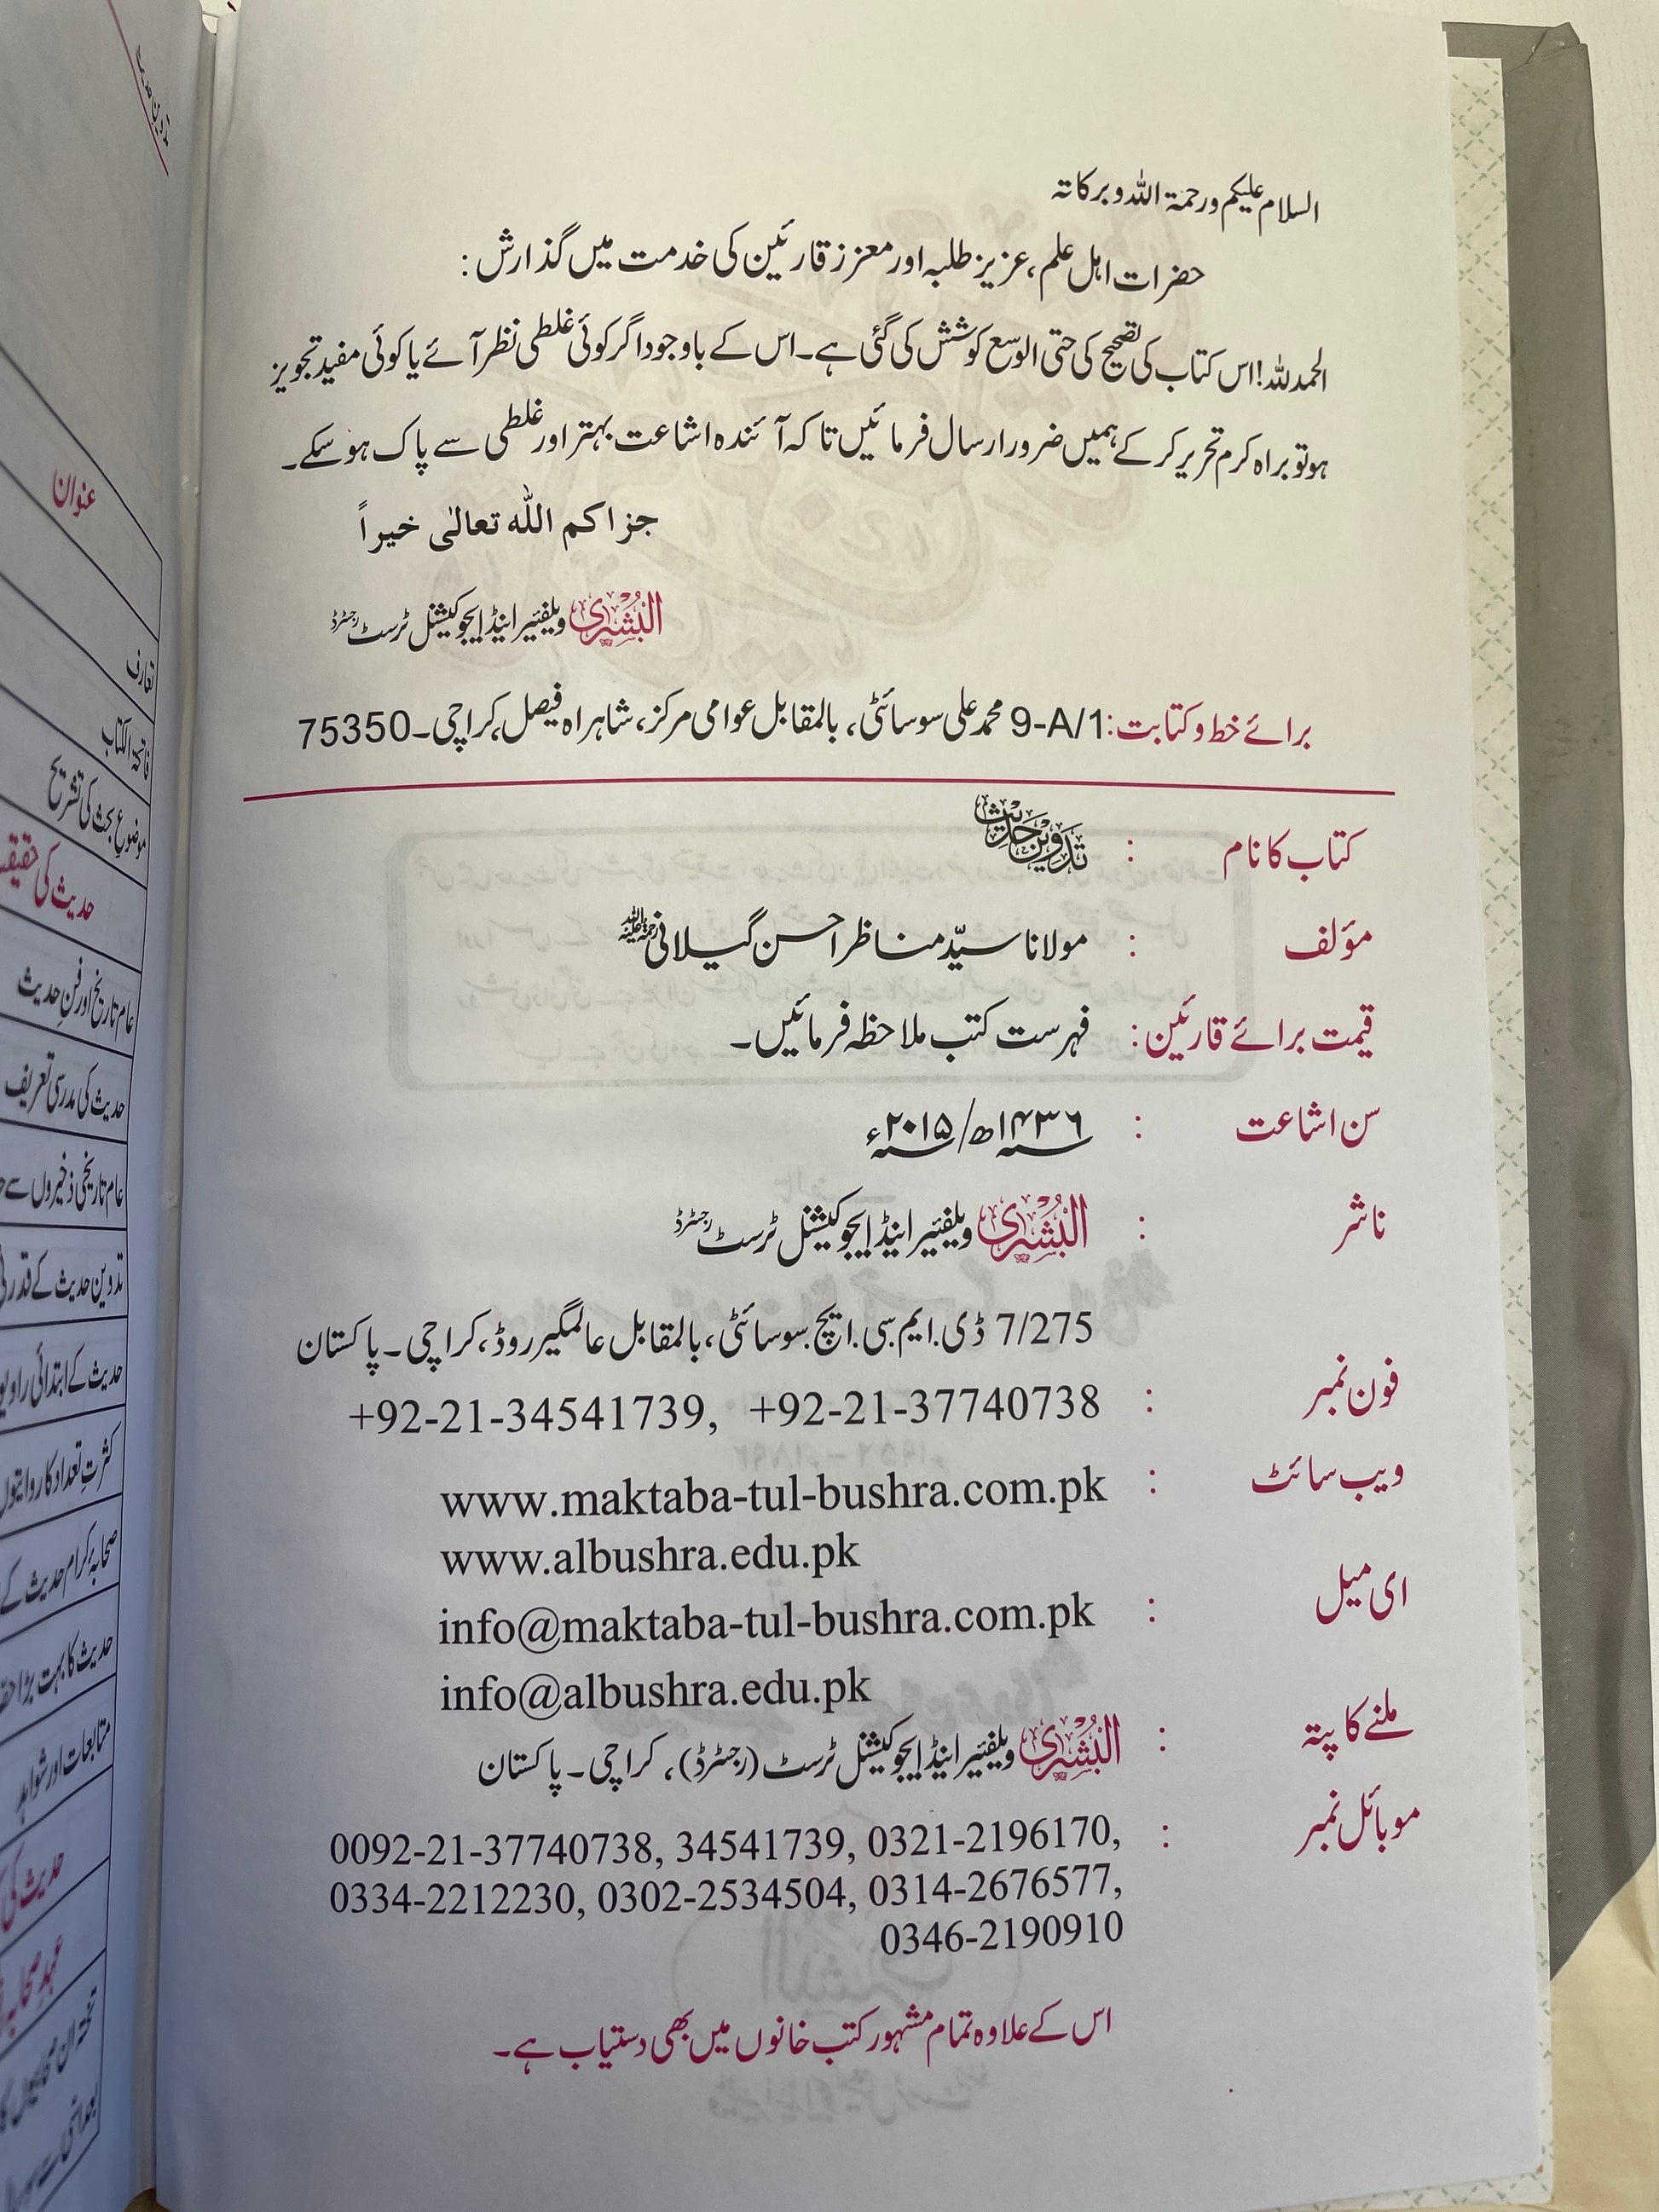 السلام علیکم ورحمۃ اللہ وبرکاتہ
حضرات اہل علم، عزیز طلبہ اور معزز قارئین کی خدمت میں گذارش:
الحمدللہ! اس کتاب کی تصحیح کی حتی الوسع کوشش کی گئی ہے۔ اس کے باوجود اگر کوئی غلطی نظر آئے یا کوئی مفید تجویز
ہو تو براہ کرم تحریر کر کے ہمیں ضرور ارسال فرمائیں تاکہ آئندہ اشاعت بہتر اور غلطی سے پاک ہو سکے۔
جزاکم اللہ تعالٰی خیراً
البُشریٰ ویلفیئر اینڈ ایجوکیشنل ٹرسٹ رجسٹرڈ
برائے خط و کتابت: 9-A/1 محمد علی سوسائٹی، بالمقابل عوامی مرکز، شاہراہ فیصل، کراچی۔ 75350
کتاب کا نام : تدوین حدیث
مؤلف : مولانا سیّد مناظر احسن گیلانی رحمۃ اللہ علیہ
قیمت برائے قارئین: فہرست کتب ملاحظہ فرمائیں۔
سن اشاعت : ۱۴۳۶ھ/ ۲۰۱۵ء
ناشر : البُشریٰ ویلفیئر اینڈ ایجوکیشنل ٹرسٹ رجسٹرڈ
7/275 ڈی.ایم.سی.ایچ.سوسائٹی، بالمقابل عالمگیر روڈ، کراچی۔ پاکستان
فون نمبر : +92-21-34541739, +92-21-37740738
ویب سائٹ : www.maktaba-tul-bushra.com.pk
www.albushra.edu.pk
ای میل : info@maktaba-tul-bushra.com.pk
info@albushra.edu.pk
ملنے کا پتہ : البُشریٰ ویلفیئر اینڈ ایجوکیشنل ٹرسٹ (رجسٹرڈ)، کراچی۔ پاکستان
موبائل نمبر : 0092-21-37740738, 34541739, 0321-2196170,
0334-2212230, 0302-2534504, 0314-2676577,
0346-2190910
اس کے علاوہ تمام مشہور کتب خانوں میں بھی دستیاب ہے۔
عنوان
تعارف
فاتحۃ الکتاب
موضوع بحث کی تشریح
حدیث کی
عام تاریخ اور فنِ حدیث
حدیث کی مدرسی تعریف
عام تاریخی ذخیروں سے
تدوین حدیث کے
حدیث کے ابتدائی
کثرتِ تعداد کا
صحابۂ کرام حدیث کے
حدیث کا بہت بڑا
متابعات اور شواہد
حدیث کی
عہدِ صحابہ